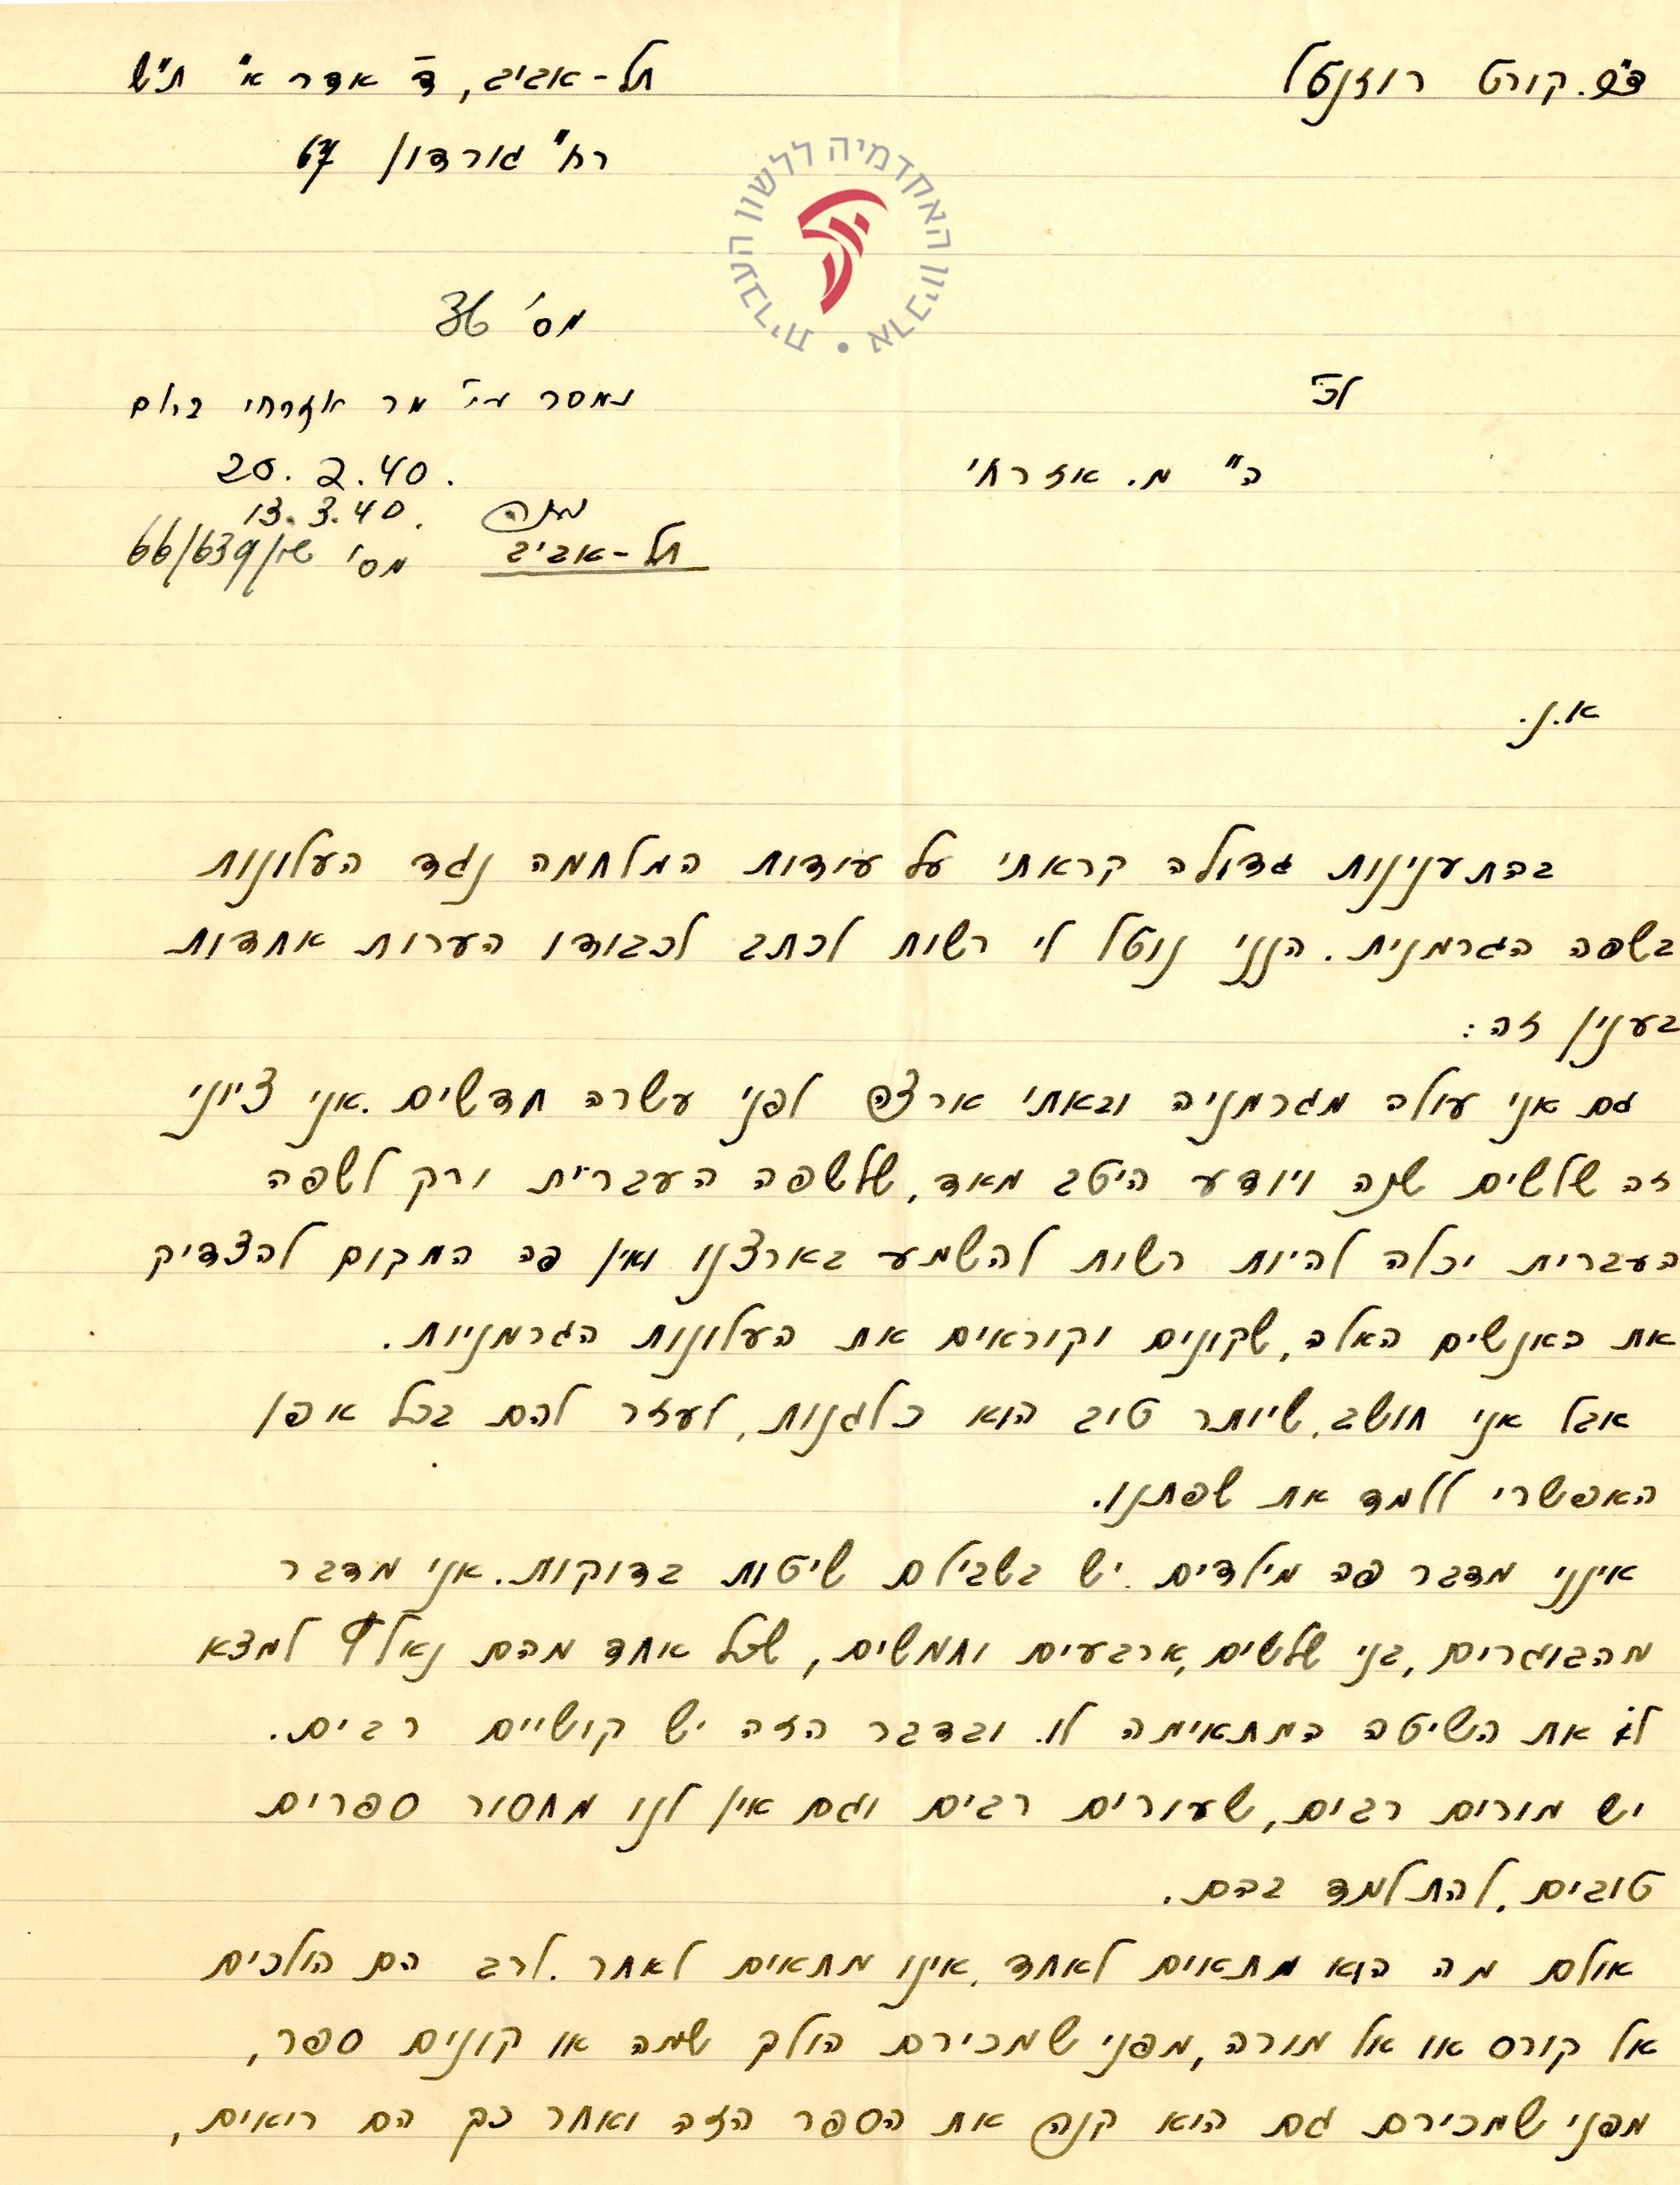 ד"ר. קורט רוזנטל
תל-אביב, ד' אדר א' ת"ש
רח' גורדון 67
ארכיון האקדמיה ללשון העברית
מס' 36
לכ'
נמסר ע"י מר אזרחי ביום
ה' מ. אזרחי
20. 2. 40.
13. 3. 40.
תל-אביב
מס' 66/639/
א.נ.
בהתענינות גדולה קראתי על עודות המלחמה נגד העלונות
בשפה הגרמנית. הנני נוטל לי רשות לכתב לכבודו הערות אחדות
בענין זה:
גם אני עולה מגרמניה ובאתי ארצה לפני עשרה חדשים. אני ציוני
זה שלשים שנה ויודע היטב מאד, שלשפה העברית ורק לשפה
העברית יכלה להיות רשות להשמע בארצנו ואין פה המקום להצדיק
את האנשים האלה, שקונים וקוראים את העלונות הגרמניות.
אבל אני חושב, שיותר טוב הוא כלגנות, לעזר להם בכל אפן
האפשרי ללמד את שפתנו.
אינני מדבר פה מילדים. יש בשבילם שיטות בדוקות. אני מדבר
מהבוגרים, בני שלשים, ארבעים וחמשים, שכל אחד מהם נאלץ למצא
לו את השיטה המתאימה לו. ובדבר הזה יש קושיים רבים.
יש מורים רבים, שעורים רבים וגם אין לנו מחסור ספרים
טובים, להתלמד בהם.
אולם מה הוא מתאים לאחד, אינו מתאים לאחר. לרב הם הולכים
אל קורס או אל מורה, מפני שמכירם הולך שמה או קונים ספר,
מפני שמכירם גם הוא קנה את הספר הזה ואחר כך הם רואים,